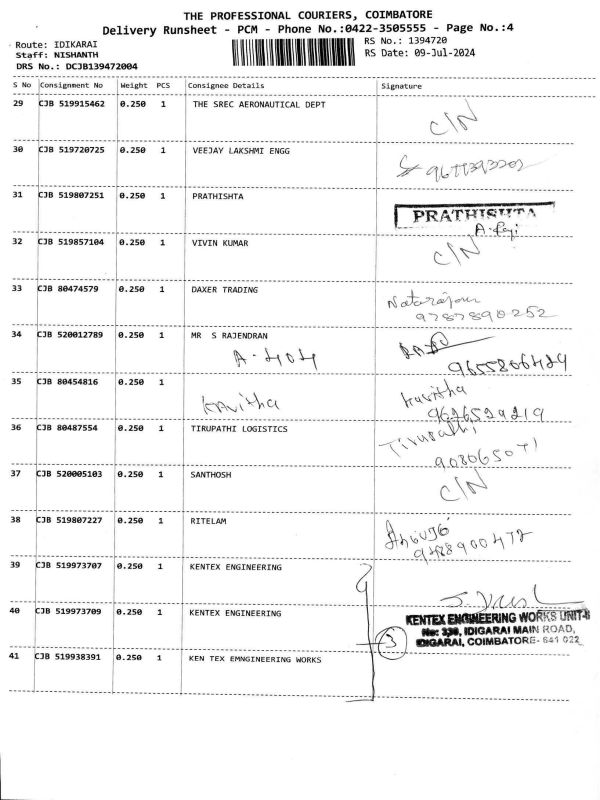 THE PROFESSIONAL COURIERS, COIMBATORE
Delivery Runsheet - PCM - Phone No.:0422-3505555 - Page No.:4
Route: IDIKARAI
RS No.: 1394720
Staff: NISHANTH
RS Date: 09-Jul-2024
DRS No.: DCJB139472004
S No Consignment No Weight PCS Consignee Details Signature
29 CJB 519915462 0.250 1 THE SREC AERONAUTICAL DEPT
C/N
30 CJB 519720725 0.250 1 VEEJAY LAKSHMI ENGG
31 CJB 519807251 0.250 1 PRATHISHTA
PRATHISHTA
32 CJB 519857104 0.250 1 VIVIN KUMAR
C/N
33 CJB 80474579 0.250 1 DAXER TRADING
Natarajan
9787890252
34 CJB 520012789 0.250 1 MR S RAJENDRAN
A-404
9655806429
35 CJB 80454816 0.250 1
Kavitha
Kavitha
9626529219
36 CJB 80487554 0.250 1 TIRUPATHI LOGISTICS
Tirupathi
37 CJB 520005103 0.250 1 SANTHOSH
C/N
38 CJB 519807227 0.250 1 RITELAM
39 CJB 519973707 0.250 1 KENTEX ENGINEERING
40 CJB 519973709 0.250 1 KENTEX ENGINEERING
3
KENTEX ENGINEERING WORKS UNIT-II
No: 330, IDIGARAI MAIN ROAD,
IDIGARAI, COIMBATORE- 641 022
41 CJB 519938391 0.250 1 KEN TEX EMNGINEERING WORKS